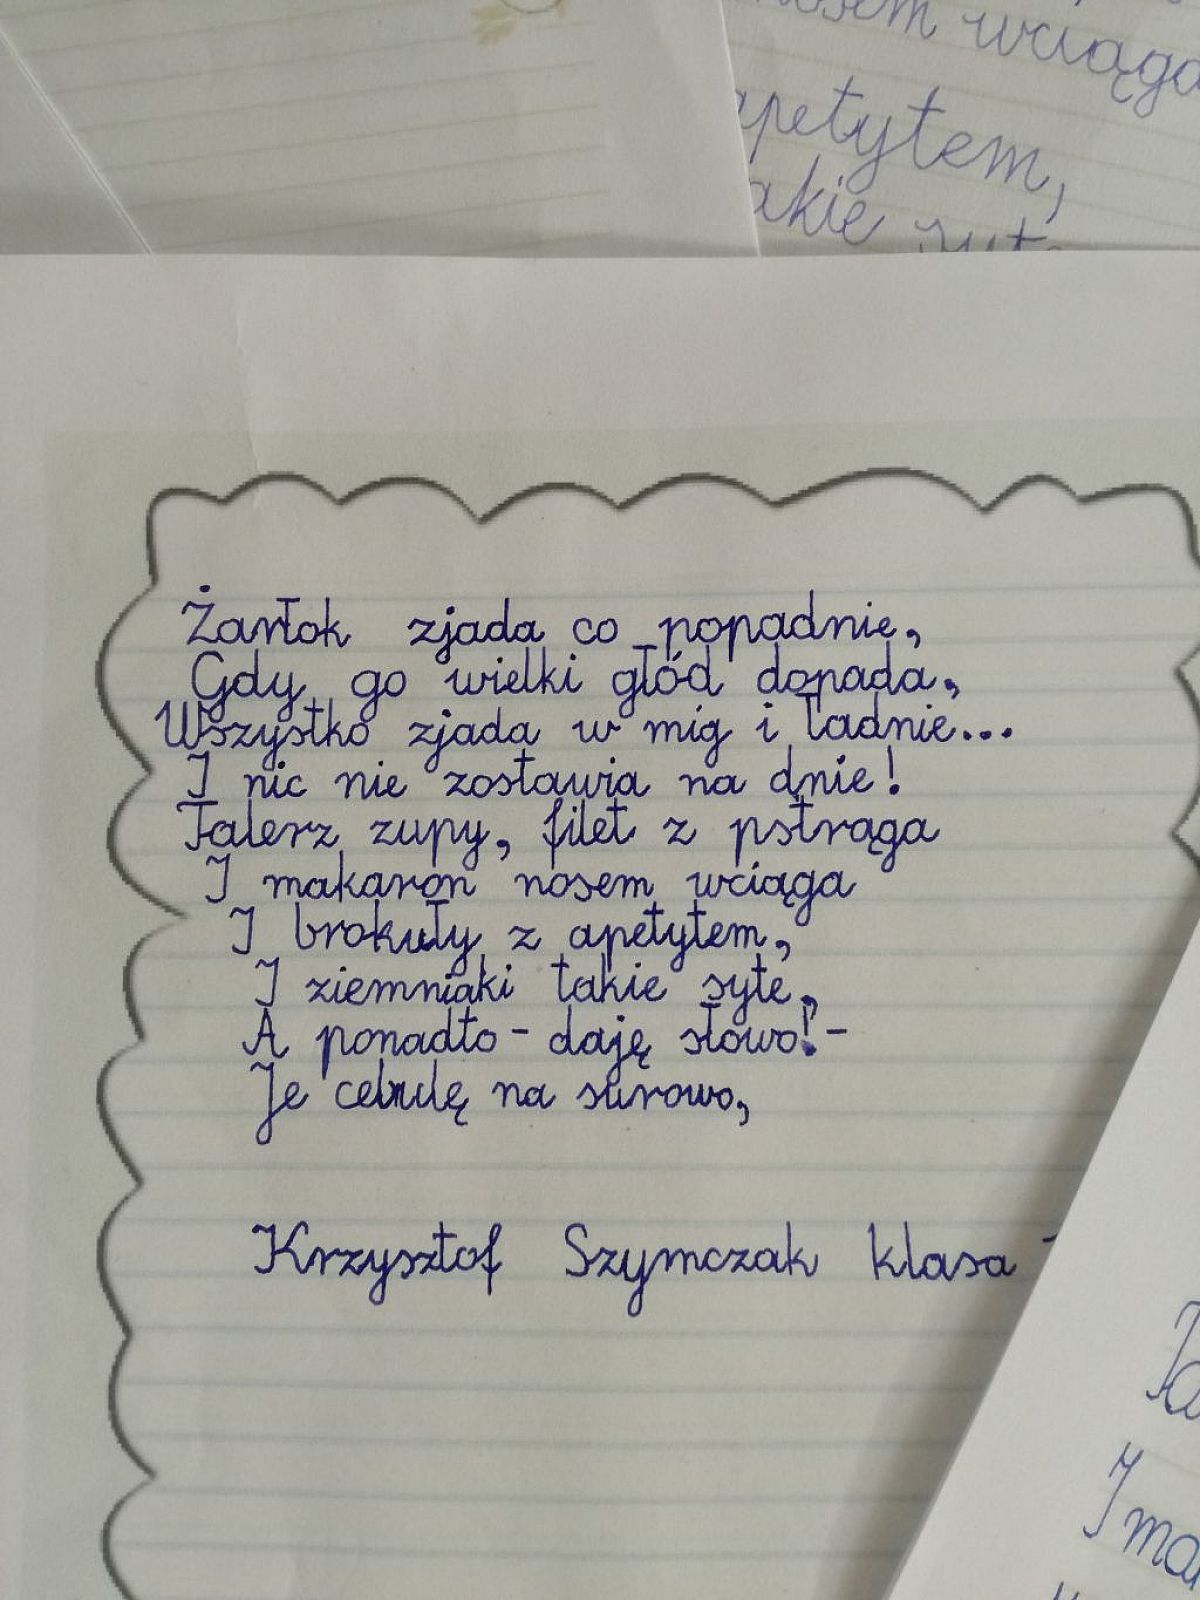 nosem wciąga
apetytem,
takie
Żarłok zjada co popadnie,
Gdy go wielki głód dopada,
Wszystko zjada w mig i ładnie...
I nic nie zostawia na dnie!
Talerz zupy, filet z pstrąga
I makaron nosem wciąga
I brokuły z apetytem,
I ziemniaki takie syte,
A ponadto - daję słowo! -
Je cebulę na surowo,
Krzysztof Szymczak klasa
I ma